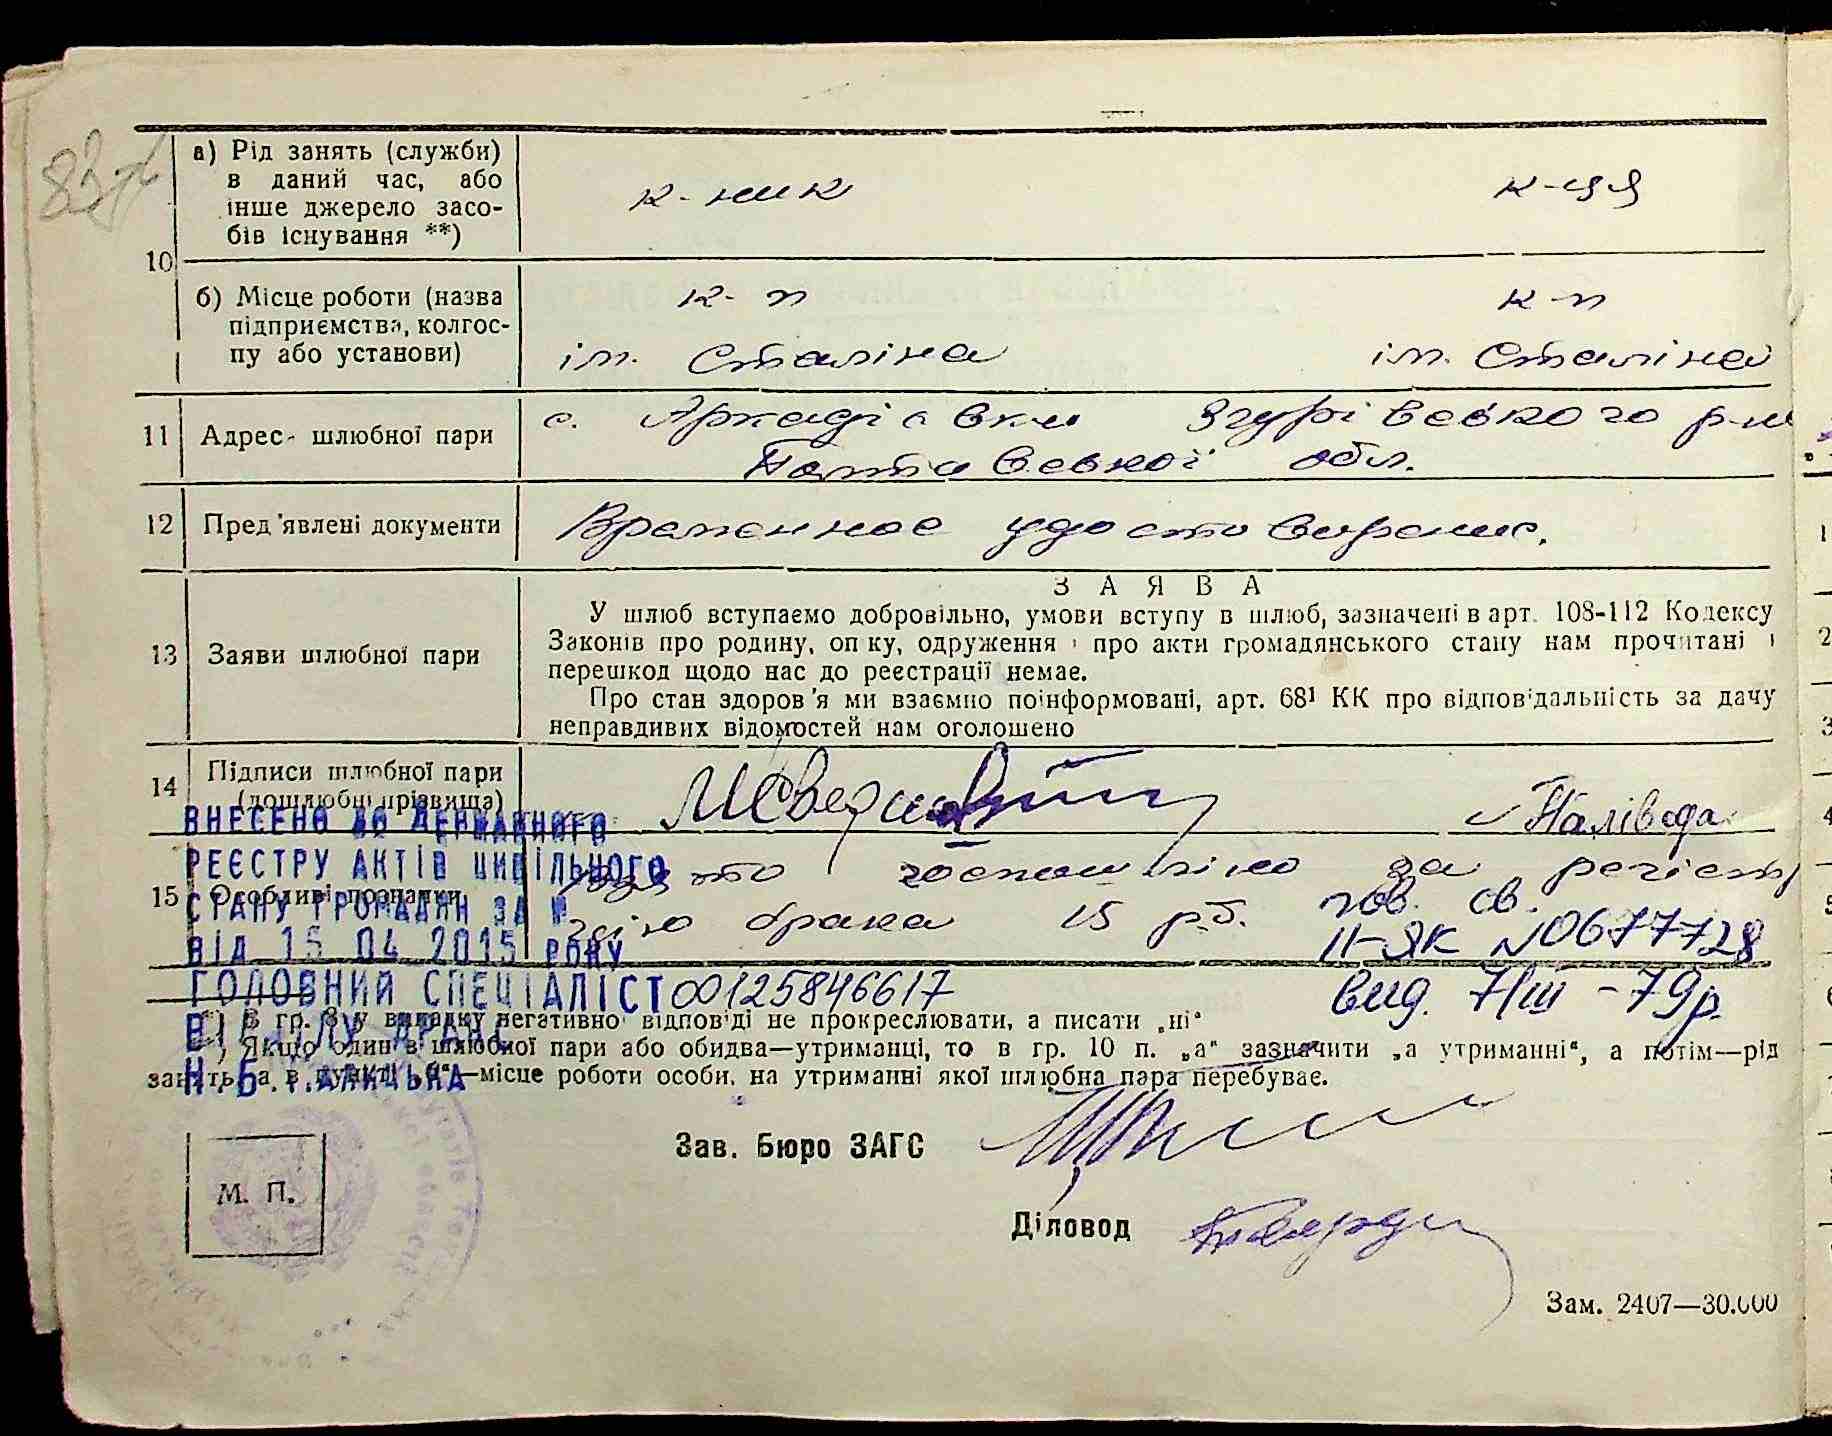 10
а) Рід занять (служби)
в даний час, або
інше джерело засо-
бів існування **)
к-ник
к-ця
б) Місце роботи (назва
підприємства, колгос-
пу або установи)
к-п
ім. Сталіна
к-п
ім. Сталіна
11 Адрес шлюбної пари
с. Аркадіевки Згурівського р-н
Полтавської обл.
12 Пред'явлені документи
Временное удостоверение.
13 Заяви шлюбної пари
ЗАЯВА
У шлюб вступаємо добровільно, умови вступу в шлюб, зазначені в арт. 108-112 Кодексу
Законів про родину, опіку, одруження і про акти громадянського стану нам прочитані і
перешкод щодо нас до реєстрації немає.
Про стан здоров'я ми взаємно поінформовані, арт. 68¹ КК про відповідальність за дачу
неправдивих відомостей нам оголошено
14 Підписи шлюбної пари
(дошлюбні прізвища)
Налівода
ВНЕСЕНО ДО ДЕРЖАВНОГО
РЕЄСТРУ АКТІВ ЦИВІЛЬНОГО
СТАНУ ГРОМАДЯН ЗА №
ВІД 15 04 2015 РОКУ
ГОЛОВНИЙ СПЕЦІАЛІСТ 00125846617
ВІДДІЛУ ДРАЦС
15 Особливі познаки
за регістр
ацію брака 15 р.б.
пов. св.
II-ЯК №0677728
вид. 7/III-79р.
*) В гр. 8 у випадку негативної відповіді не прокреслювати, а писати „ні“
**) Якщо один в шлюбної пари або обидва—утриманці, то в гр. 10 п. „а“ зазначити „а утриманні“, а потім—рід
занять, а в пункті „б“—місце роботи особи, на утриманні якої шлюбна пара перебуває.
Зав. Бюро ЗАГС
М. П.
Діловод
Зам. 2407—30.000